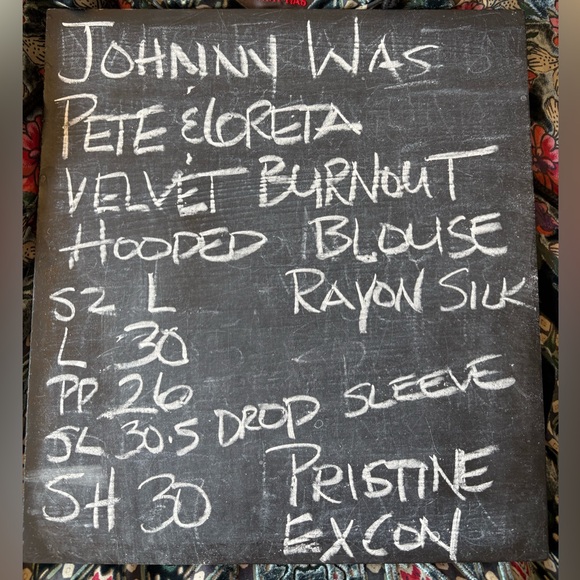 JOHNNY WAS
PETE & LORETA
VELVET BURNOUT
HOODED BLOUSE
SZ L RAYON SILK
L 30
PP 26
SL 30.5 DROP SLEEVE
SH 30 PRISTINE
EXCON